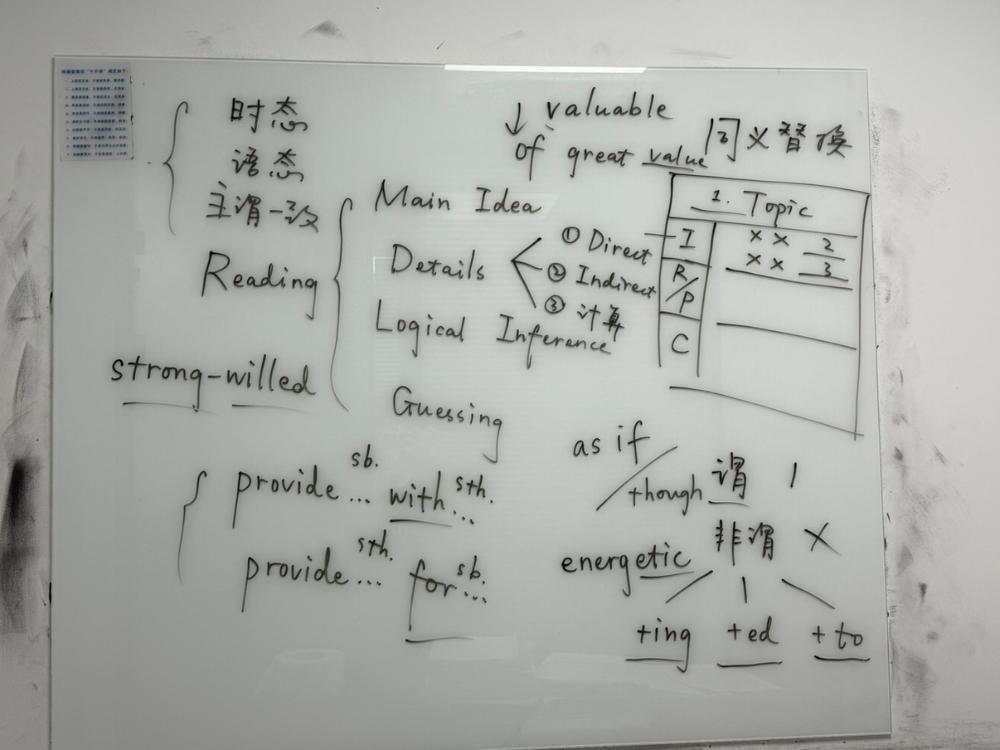 时态
语态
主谓一致
↓ valuable
of great value 同义替换
Reading
Main Idea
Details
① Direct
② Indirect
③ 计算
Logical Inference
Guessing
1. Topic
I ×× 2
×× 3
R/P
C
strong-willed
provide sb. ... with sth. ...
provide sth. ... for sb. ...
as if / though 谓 1
非谓 ×
energetic
+ing +ed +to